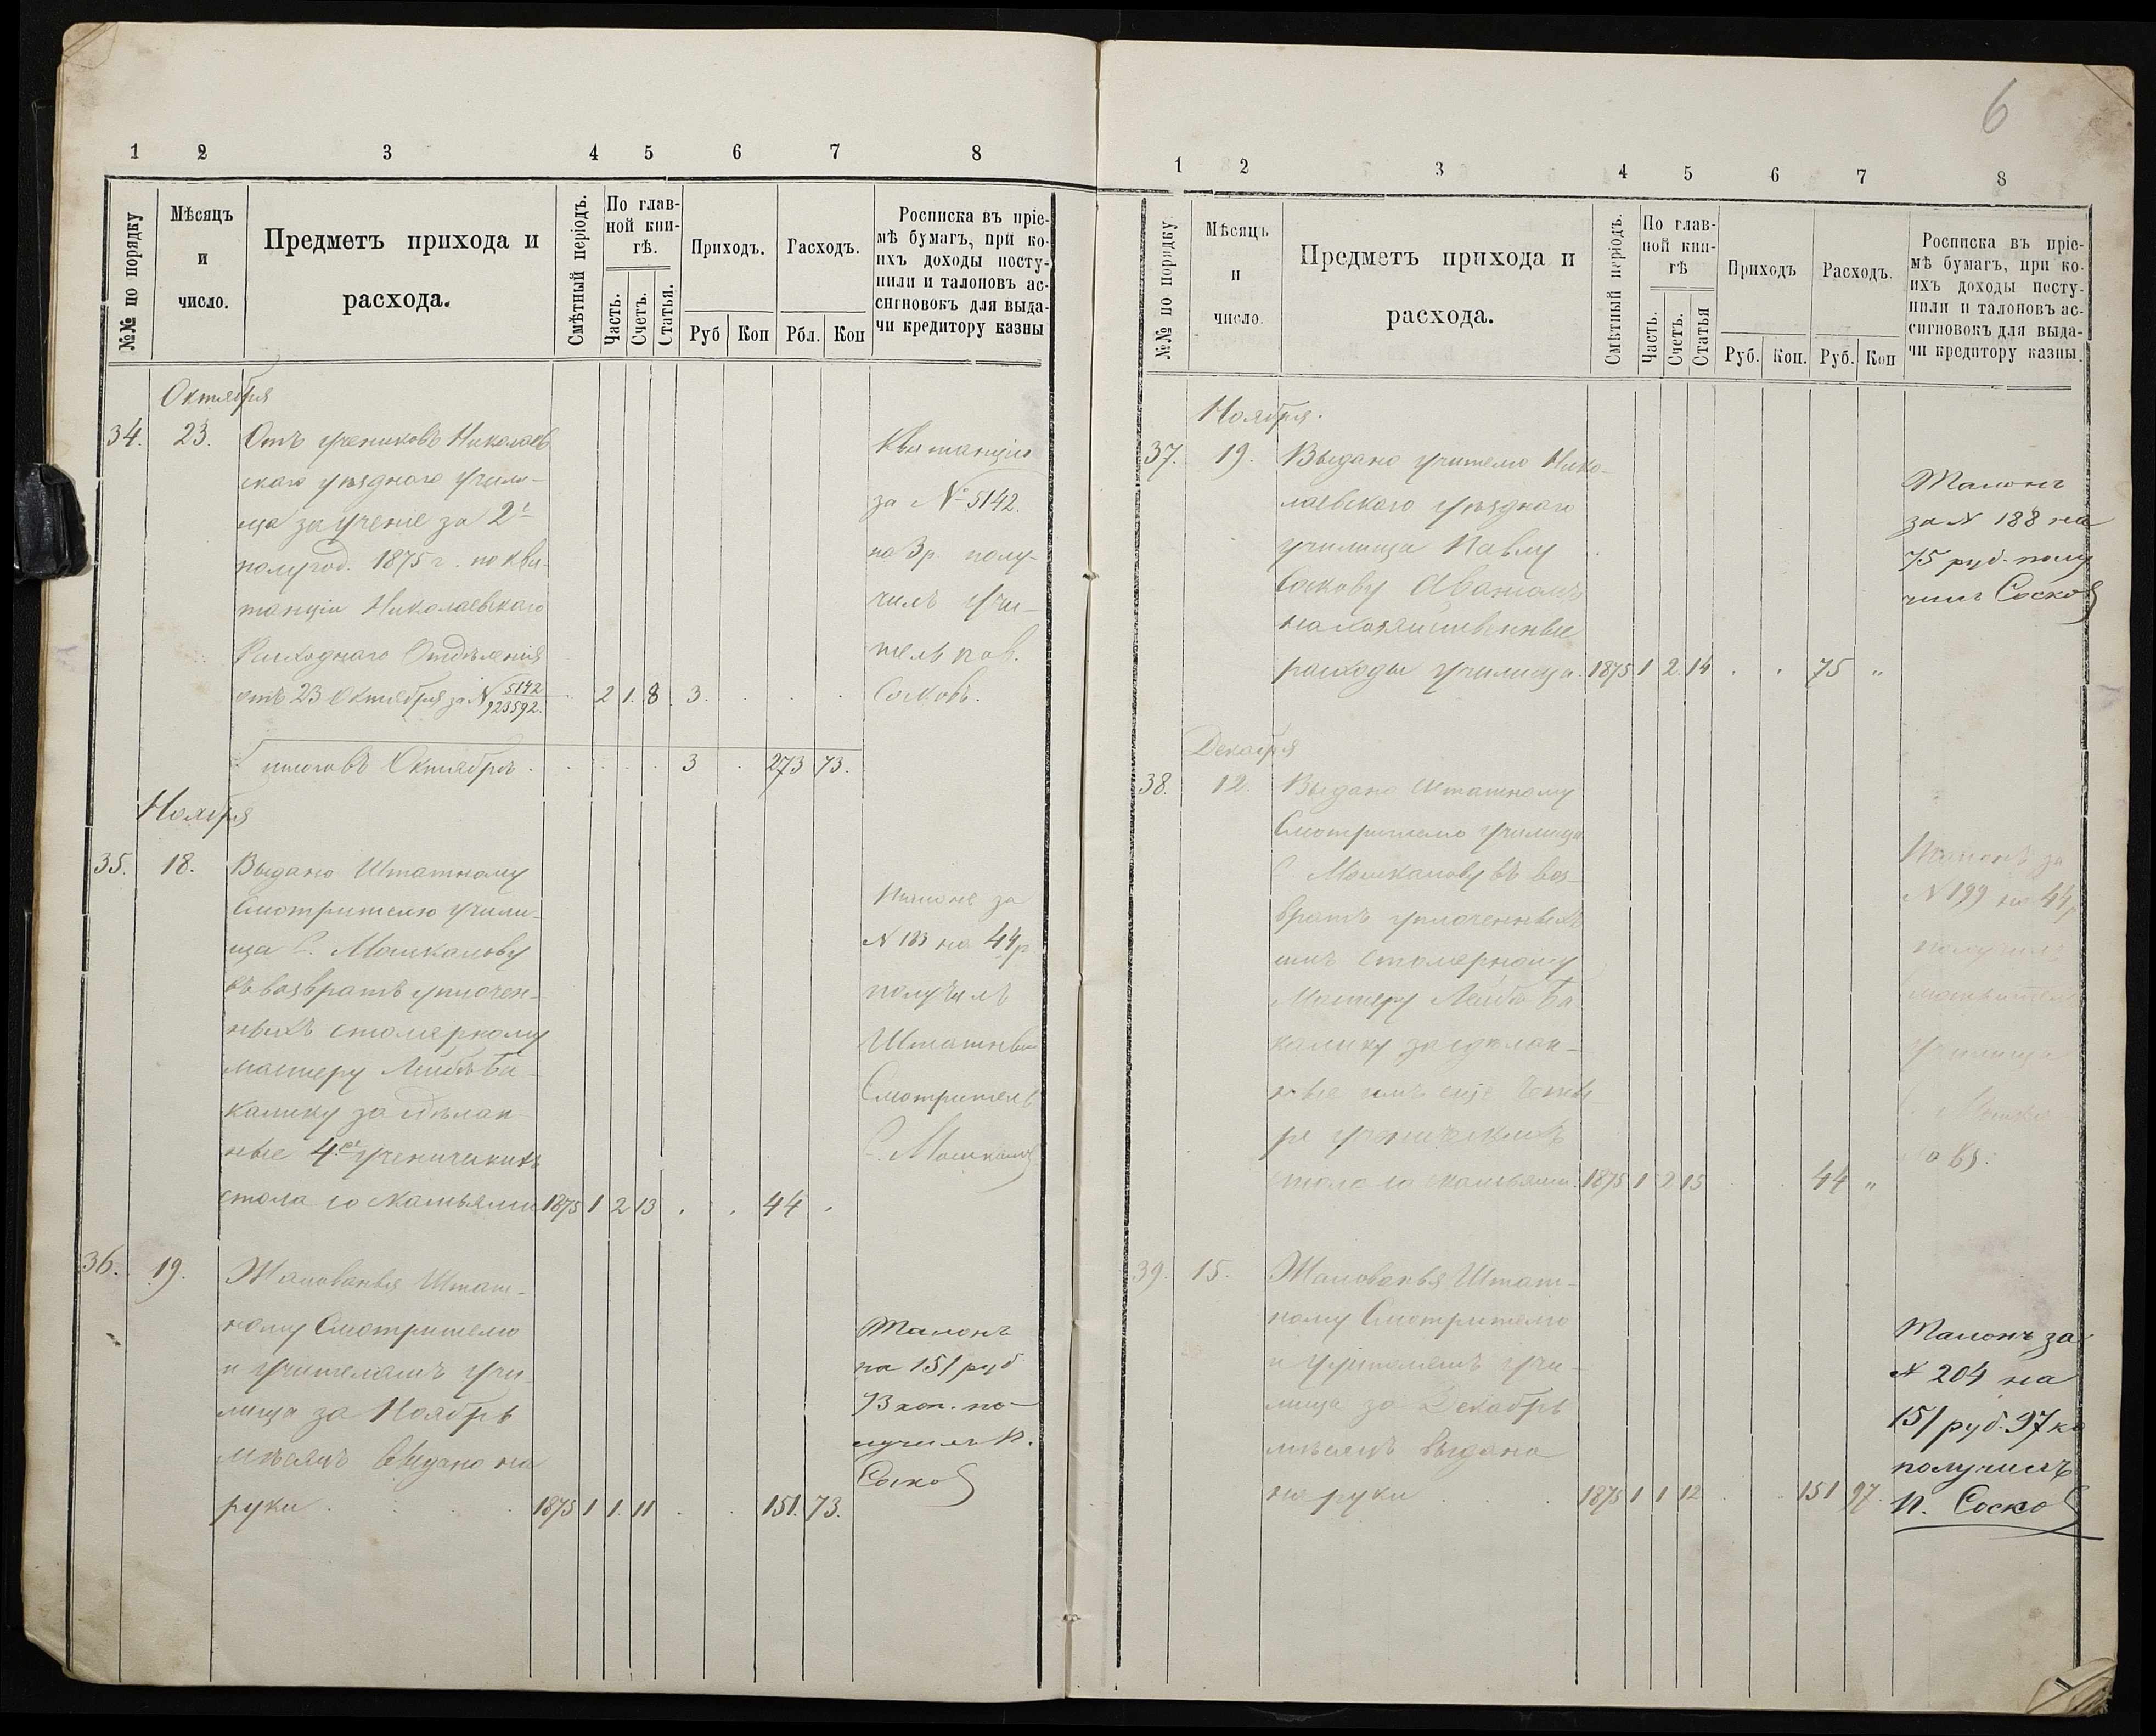 1 2 3 4 5 6 7 8
№№ по порядку
Мѣсяцъ
и
число.
Предметъ прихода и
расхода.
Смѣтный періодъ.
По глав-
ной кни-
гѣ.
Часть.
Счетъ.
Статья.
Приходъ.
Расходъ.
Руб Коп Рбл. Коп
Росписка въ пріе-
мѣ бумагъ, при ко-
ихъ доходы посту-
пили и талоновъ ас-
сигновокъ для выда-
чи кредитору казны
Октября
34. 23. Отъ учениковъ Николаев
скаго уѣзднаго учили-
ща за ученіе за 2е
полугод. 1875 г. по кви-
танціи Николаевскаго
Расходнаго Отдѣленія
отъ 23 Октября за № 5142/923592. 2 1. 8 3.
Квитанцію
за № 5142.
на 3 р. полу-
чилъ учи-
тель пав.
Сосковъ.
итого въ Октябрѣ 3 273 73.
Ноября
35. 18. Выдано Штатному
Смотрителю учили-
ща С. Мошкалову
въ возвратъ уплочен-
ныхъ столярному
мастеру Лейбѣ Ба-
калику за сдѣлан-
ные 4ре ученическихъ
стола со скамьями 1875 1 2 13 44
за
N 183 на 44 р
получилъ
Штатный
Смотритель
С. Мошкаловъ
36. 19. Жалованья Штат-
ному Смотрителю
и учителямъ учи-
лища за Ноябрь
мѣсяцъ выдано на
руки 1875 1 1. 11 151. 73.
Талонъ
на 151 руб
73 коп. по-
лучилъ П.
Сосков
6
1 2 3 4 5 6 7 8
№№ по порядку
Мѣсяцъ
и
число.
Предметъ прихода и
расхода.
Смѣтный періодъ.
По глав-
ной кни-
гѣ
Часть.
Счетъ.
Статья
Приходъ
Расходъ.
Руб. Коп. Руб. Коп
Росписка въ пріе-
мѣ бумагъ, при ко-
ихъ доходы посту-
пили и талоновъ ас-
сигновокъ для выда-
чи кредитору казны.
Ноября.
37. 19. Выдано учителю Нико-
лаевскаго уѣзднаго
училища Павлу
Соскову Авансомъ
на хозяйственные
расходы училища. 1875 1 2. 14 75 "
Талонъ
за N 188 на
75 руб. полу
чилъ Сосков
Декабря
38. 12. Выдано Штатному
Смотрителю училища
С. Мошкалову въ воз-
вратъ уплоченныхъ
имъ столярному
Мастеру Лейбѣ Ба-
калику за сдѣлан-
ные имъ еще четы
ре ученическихъ
стола со скамьями. 1875 1 2 13 44 "
Талонъ за
N 199 на 44 р
получилъ
училища
39. 15. Жалованья Штат-
ному Смотрителю
и учителямъ учи-
лища за Декабрь
мѣсяцъ выдано
на руки 1875 1 1 12 151 97.
Талонъ за
N 204 на
151 руб. 97 ко
получилъ
П. Сосков